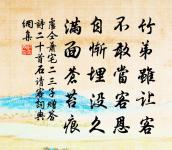 竹弟雖讓客
不敢當客恩
自慚埋没久
滿面蒼苔痕
盧仝蕭宅二三子贈答
詩二十首石請客詞典
網集